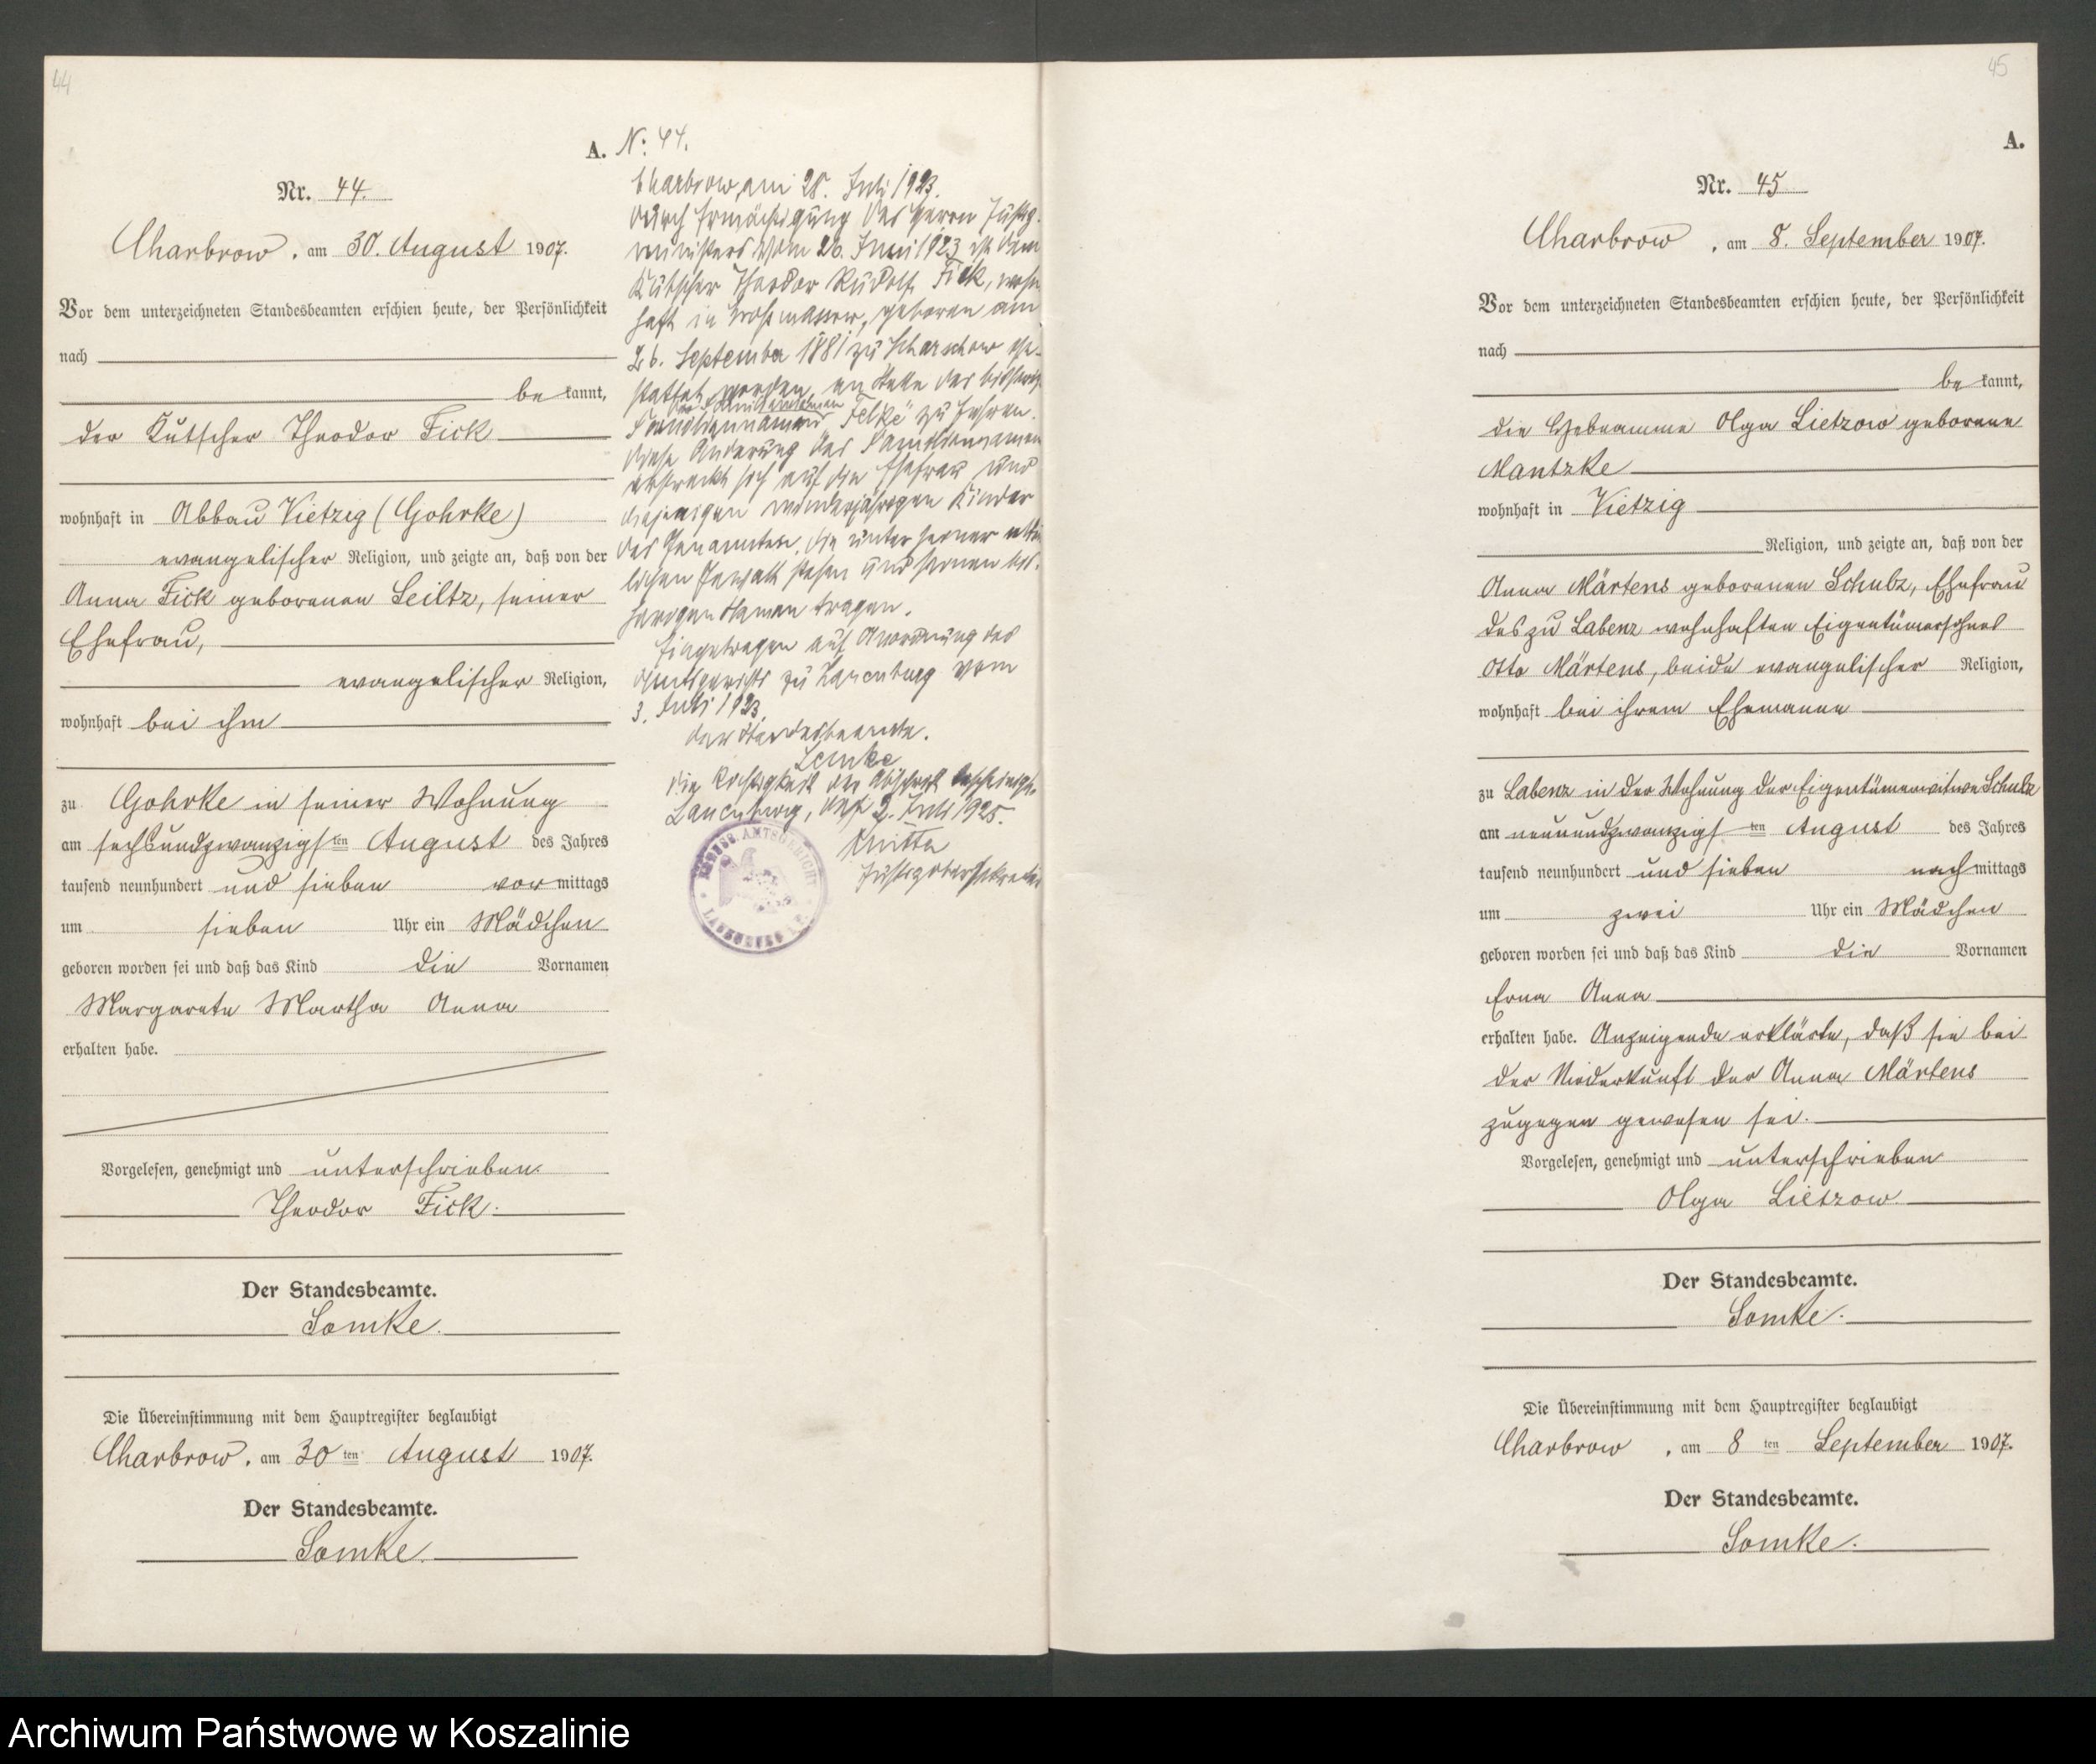 44
A.
Nr. 44.
Charbrow, am 30. August 1907.
Vor dem unterzeichneten Standesbeamten erschien heute, der Persönlichkeit
nach
be kannt,
der Kutscher Theodor Fick
wohnhaft in Abbau Vietzig (Gohrke)
evangelischer Religion, und zeigte an, daß von der
Anna Fick geborenen Seiltz, seiner
Ehefrau,
evangelischer Religion,
wohnhaft bei ihm
zu Gohrke in seiner Wohnung
am sechsundzwanzigsten August des Jahres
tausend neunhundert und sieben vormittags
um sieben Uhr ein Mädchen
geboren worden sei und daß das Kind die Vornamen
Margarete Martha Anna
erhalten habe.
Vorgelesen, genehmigt und unterschrieben.
Theodor Fick.
Der Standesbeamte.
Lemke.
Die Übereinstimmung mit dem Hauptregister beglaubigt
Charbrow, am 30ten August 1907.
Der Standesbeamte.
Lemke.
N: 44.
Charbrow, am 28. Juli 1923.
Durch Ermächtigung des Herrn Justiz-
ministers vom 26. Juni 1923 ist dem
Kutscher Theodor Rudolf Fick, wohn
haft in, geboren am
26. September 1881 zu Scharschow ge-
stattet worden, an Stelle des bisherig.
Familiennamens
den Familiennamen „Felke" zu führen.
Diese Änderung des Familiennamens
erstreckt sich auf die Ehefrau und
diejenigen minderjährigen Kinder
des Genannten, die unter seiner elter
lichen Gewalt stehen und seinen bis-
herigen Namen tragen.
Eingetragen auf Anordnung des
Amtsgerichts zu Lauenburg vom
3. Juli 1923.
Der Standesbeamte.
Lemke
Die Richtigkeit der Abschrift bescheinigt.
Lauenburg, den 2. Juli 1925.
Justizobersekretär
PREUSS. AMTSGERICHT
LAUENBURG i. P.
45
A.
Nr. 45
Charbrow, am 8. September 1907.
Vor dem unterzeichneten Standesbeamten erschien heute, der Persönlichkeit
nach
be kannt,
die Hebeamme Olga Lietzow geborene
Mantzke
wohnhaft in Vietzig
Religion, und zeigte an, daß von der
Anna Märtens geborenen Schulz, Ehefrau
des zu Labenz wohnhaften Eigentümersohnes
Otto Märtens, beide evangelischer Religion,
wohnhaft bei ihrem Ehemanne
zu Labenz in der Wohnung der Eigentümerwitwe Schulz
am neunundzwanzigsten August des Jahres
tausend neunhundert und sieben nachmittags
um zwei Uhr ein Mädchen
geboren worden sei und daß das Kind die Vornamen
Erna Anna
erhalten habe. Anzeigende erklärte, daß sie bei
der Niederkunft der Anna Märtens
zugegen gewesen sei.
Vorgelesen, genehmigt und unterschrieben
Olga Lietzow.
Der Standesbeamte.
Lemke.
Die Übereinstimmung mit dem Hauptregister beglaubigt
Charbrow, am 8ten September 1907.
Der Standesbeamte.
Lemke.
Archiwum Państwowe w Koszalinie